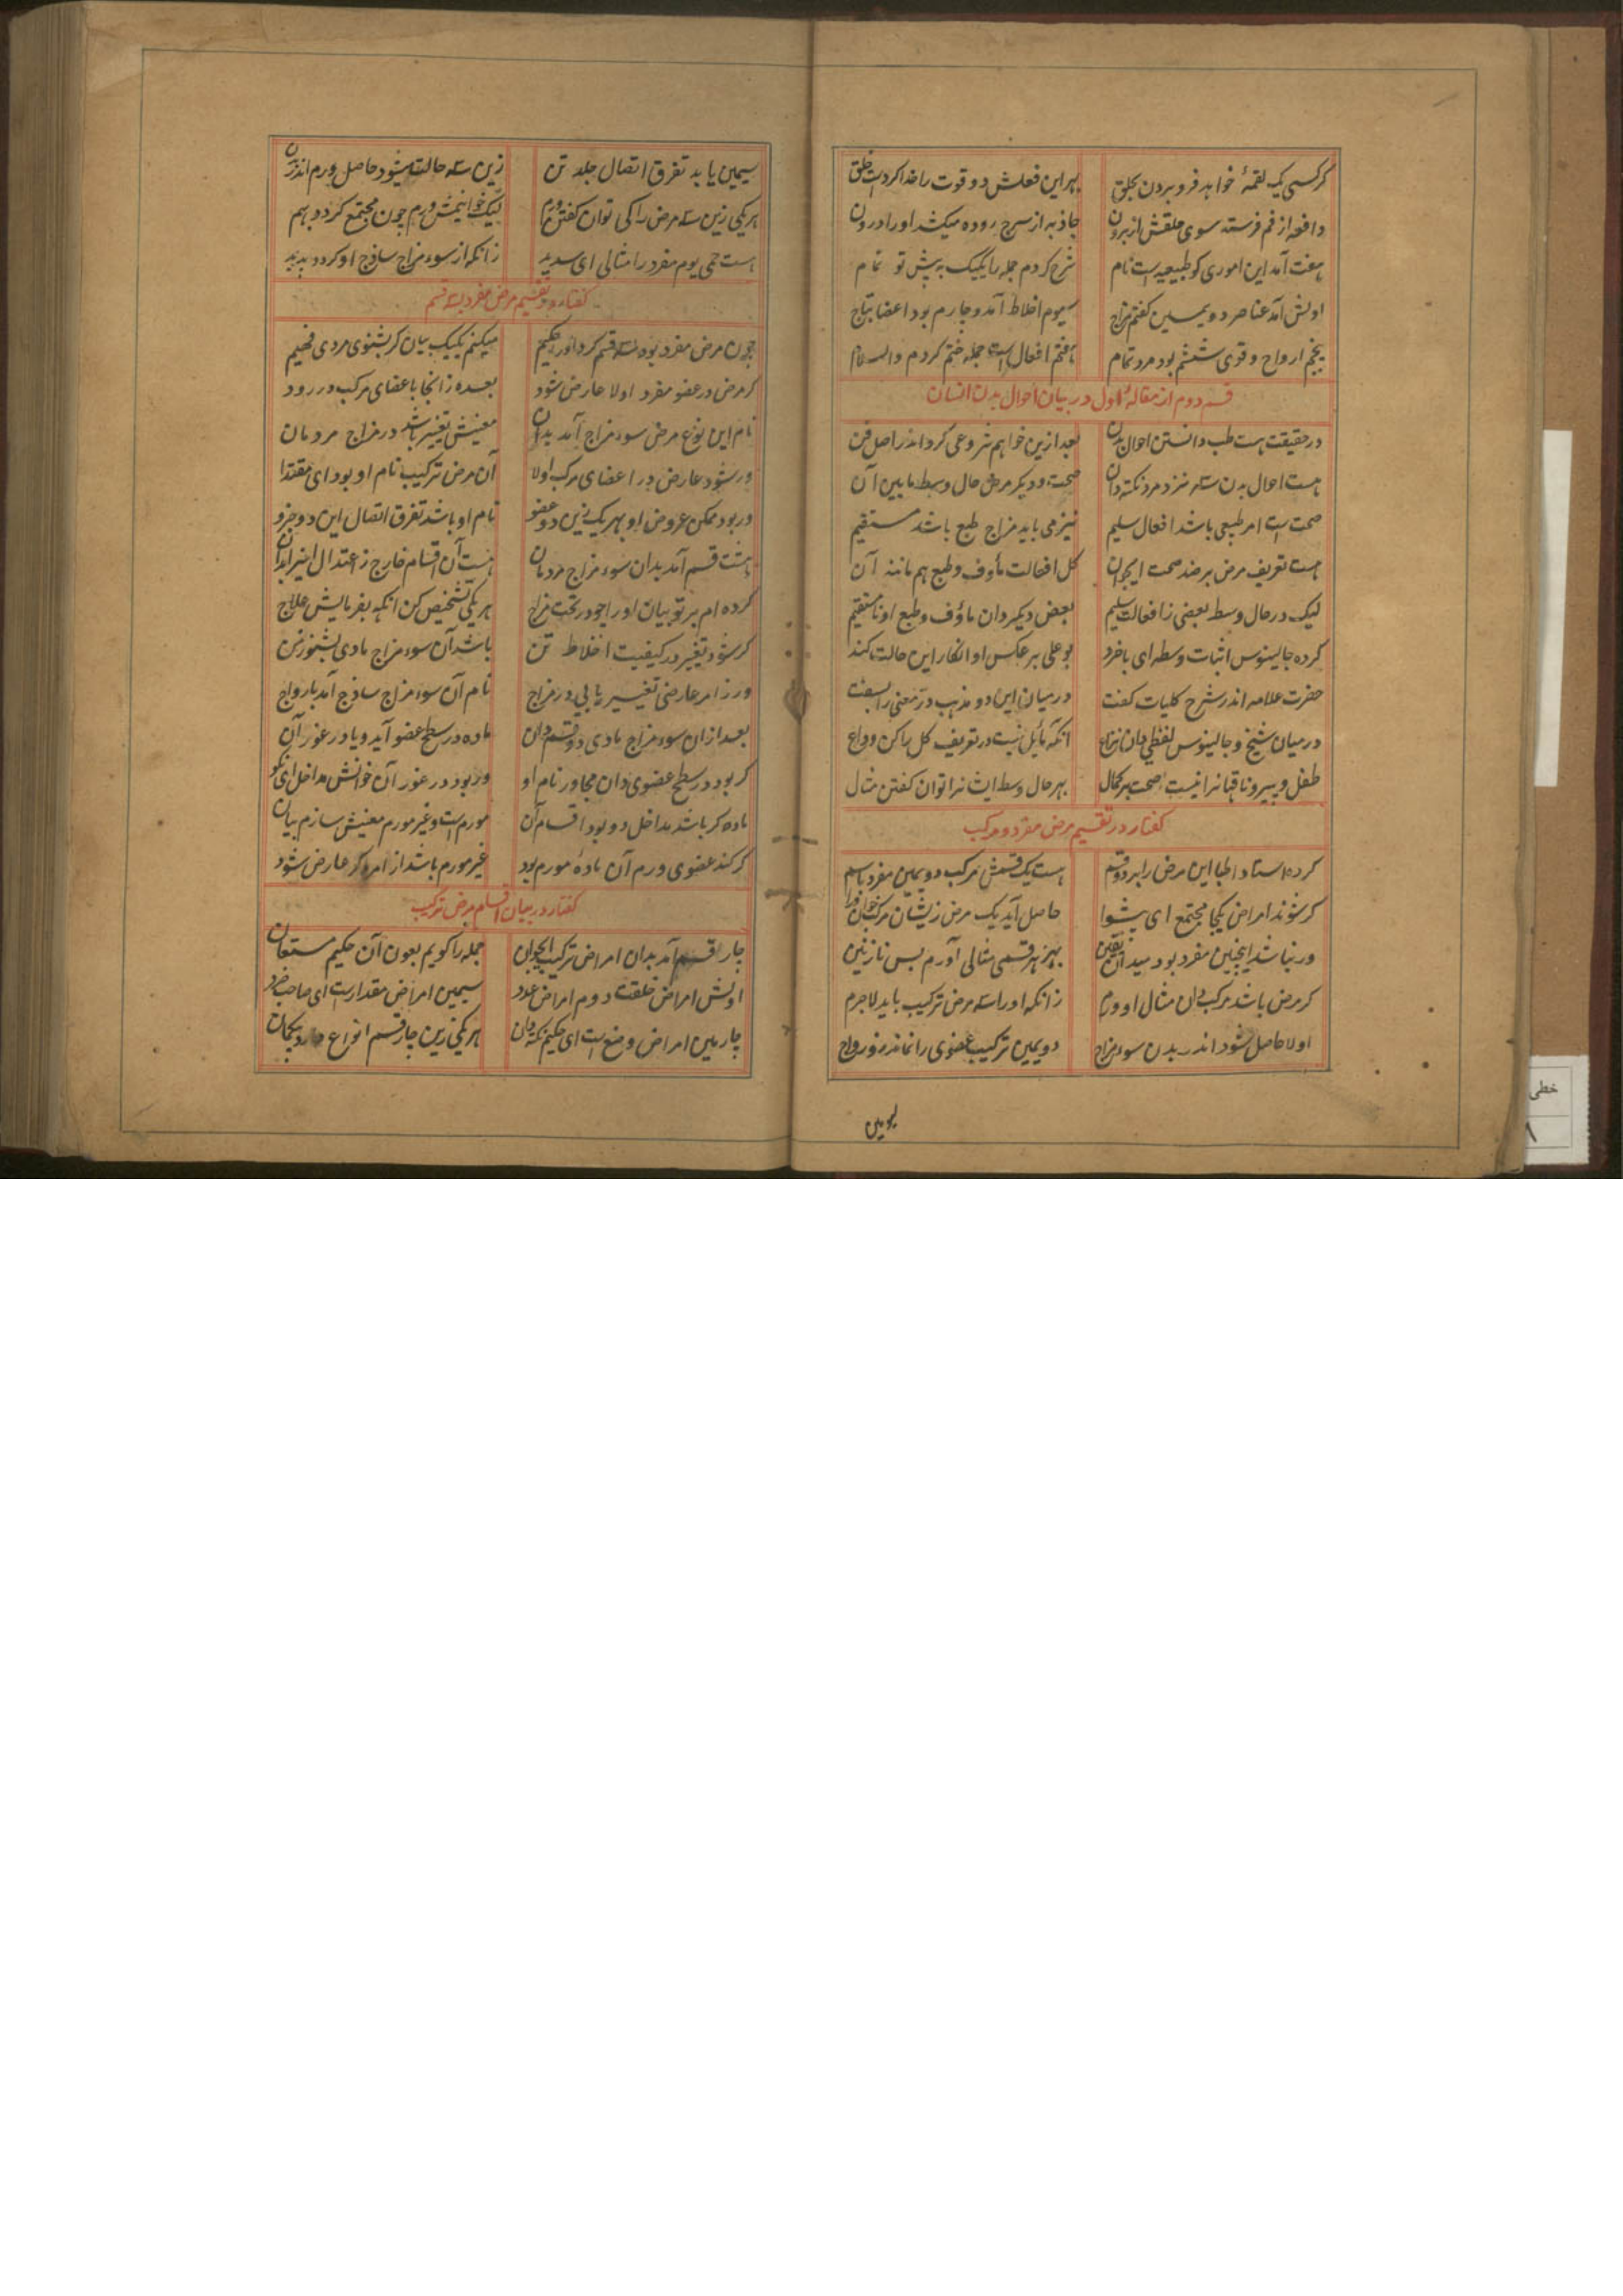 گر کسی یک لقمهٔ خواهد فرو بردن بحلق بهر این فعلش دو قوت را خدا کردست خلق
دافعه از فم فرستد سوی حلقش از برون جاذبه از سرح روده میکشد او را درون
هفت آمد این اموری کو طبیعیه است نام شرح کردم جمله را یکیک به پیش تو تمام
اولش آمد عناصر دویمین گفتم مزاج سیوم اخلاط آمد و چارم بود اعضا بتاج
پنجم ارواح و قوی ششم بود مرد تمام هفتم افعال است جمله ختم کردم والسلام
قسم دوم از مقالهٔ اول در بیان احوال بدن انسان
در حقیقت هست طب دانستن احوال بدن بعد ازین خواهم شروعی کرد اندر اصل فن
هست احوال بدن سه نزد مرد نکته دان صحت و دیگر مرض حال وسط مابین آن
صحت است امر طبیعی باشد افعال سلیم نیز می باید مزاج طبع باشد مستقیم
هست تعریف مرض بر ضد صحت ایجوان کل افعالت مأوف و طبع هم مانند آن
لیک در حال وسط بعضی ز افعالت سلیم بعض دیگر دان ماؤف و طبع او نامستقیم
کرده جالینوس اثبات وسط ای باخرد بوعلی بر عکس او انکار این حالت کند
حضرت علامه اندر شرح کلیات گفت در میان این دو مذهب در معنی را بسفت
در میان شیخ و جالینوس لفظی دان نزاع آنکه مایل نیست در تعریف کل را کن وداع
طفل و پیر و ناقهانرا نیست صحت بر کمال بهر حال وسط ایشانرا توان گفتن مثال
گفتار در تقسیم مرض مفرد و مرکب
کرده استاد اطبا این مرض را بر دو قسم هست یک قسمش مرکب دویمین مفرد باسم
گر شوند امراض یکجا مجتمع ای پیشوا حاصل آید یک مرض زیشان مرکب خوان ورا
ور نباشد اینچنین مفرد بود میدان یقین بهر هر قسمی مثالی آورم بس نازنین
گر مرض باشد مرکب دان مثال او ورم زانکه او را سه مرض ترکیب باید لاجرم
اولا حاصل شود اندر بدن سوء مزاج دویمین ترکیب عضوی را نماند زو رواج
سیمین یابد تفرق اتصال جلد تن زین سه حالت میشود حاصل ورم اندر بدن
هر یکی زین سه مرض را کی توان گفتن ورم لیک خوانیمش ورم چون مجتمع گردد بهم
هست حمی یوم مفرد را مثالی ای سدید زانکه از سوء مزاج ساذج او گردد پدید
گفتار در تقسیم مرض مفرد بسه قسم
چون مرض مفرد بود سه قسم کرد او را حکیم میکنم یکیک بیان گر بشنوی مرد فهیم
گر مرض در عضو مفرد اولا عارض شود بعده زانجا باعضای مرکب در رود
نام این نوع مرض سوء مزاج آمد بدان معنیش تغییر باشد در مزاج مردمان
ور شود عارض در اعضای مرکب اولا آن مرض ترکیب نام او بود ای مقتدا
ور بود ممکن عروض او بهر یک زین دو عضو نام او باشد تفرق اتصال این دو جزو
هشت قسم آمد بدان سوء مزاج مردمان هست آن اقسام خارج ز اعتدال
کرده ام بر تو بیان او را چو در تحت مزاج هر یکی تشخیص کن آنگه بفرمایش علاج
گر شود تغییر در کیفیت اخلاط تن باشد آن سوء مزاج مادی بشنو ز من
ور ز امر عارضی تغییر یابی در مزاج نام آن سوء مزاج ساذج آمد با رواج
بعد از آن سوء مزاج مادی دو قسم دان ماده در سطح عضو آید و یا در غور آن
گر بود در سطح عضوی دان مجاور نام او ور بود در غور آن خوانش مداخل ای نکو
ماده گر باشد مداخل دو بود اقسام آن مورم است و غیر مورم معنیش سازم بیان
گر کند عضوی ورم آن مادهٔ مورم بود غیر مورم باشد از امر گر عارض شود
گفتار در بیان اقسام مرض ترکیب
چار قسم آمد بدان امراض ترکیب ایجوان جمله را گویم بعون آن حکیم مستعان
اولش امراض خلقت دوم امراض عدد سیمین امراض مقدارست ای صاحب خرد
چارمین امراض وضع است ای حکیم نکته دان هر یکی زین چار قسم انواع دارد بیگمان
خطی